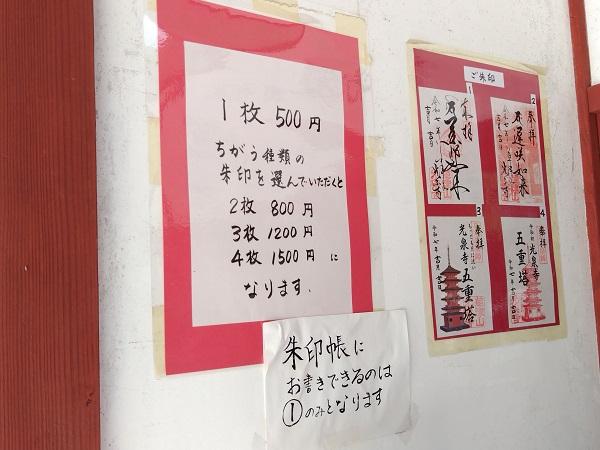 1枚 500円
ちがう種類の
朱印を選んでいただくと
2枚 800円
3枚 1200円
4枚 1500円 に
なります.
朱印帳に
お書きできるのは
①のみとなります
ご朱印
1
奉拝
2
奉拝
令和七年
3
奉拝
光泉寺
五重塔
令和七年 吉月 吉日
4
奉拝
光泉寺
五重塔
令和七年 吉月 吉日